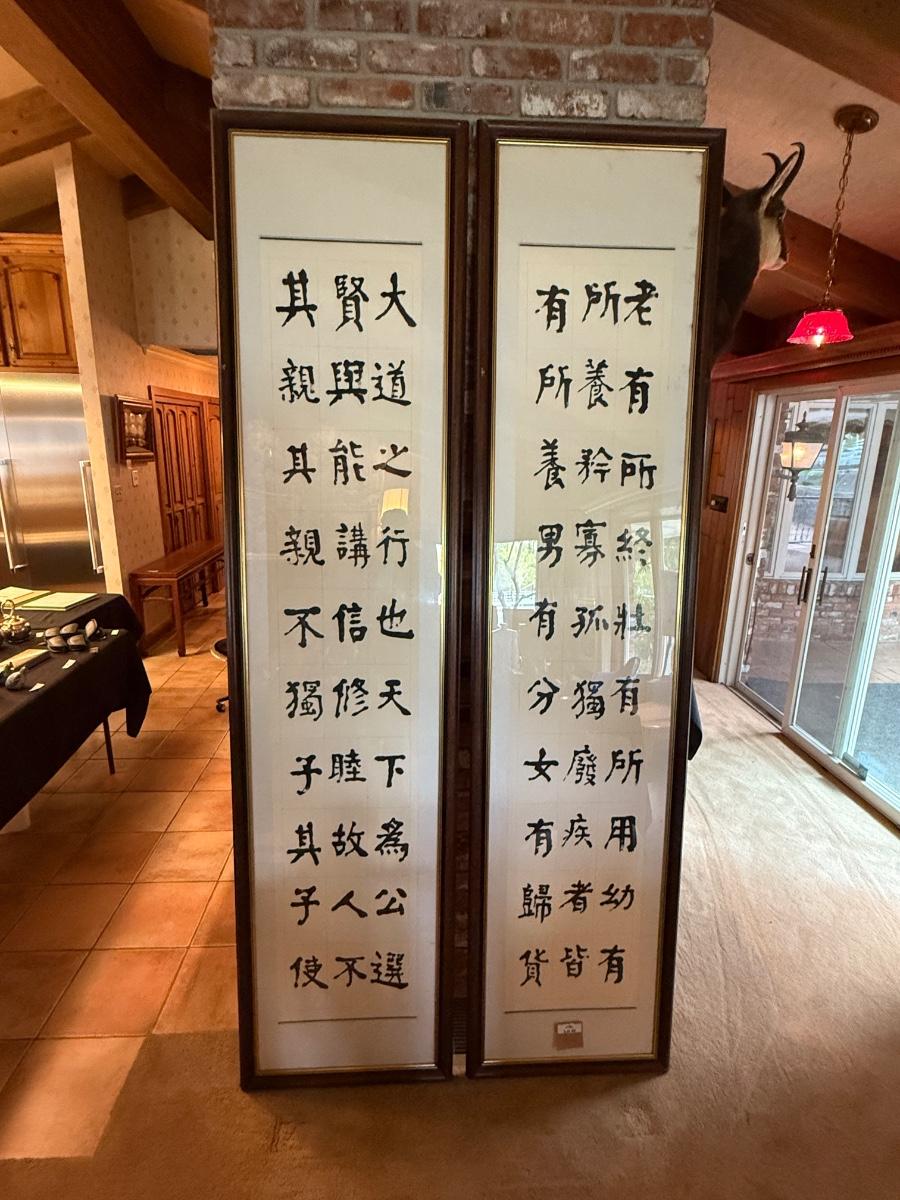 大道之行也天下為公選
賢與能講信修睦故人不
其親其親不獨子其子使
老有所終壯有所用幼有
所養矜寡孤獨廢疾者皆
有所養男有分女有歸貨